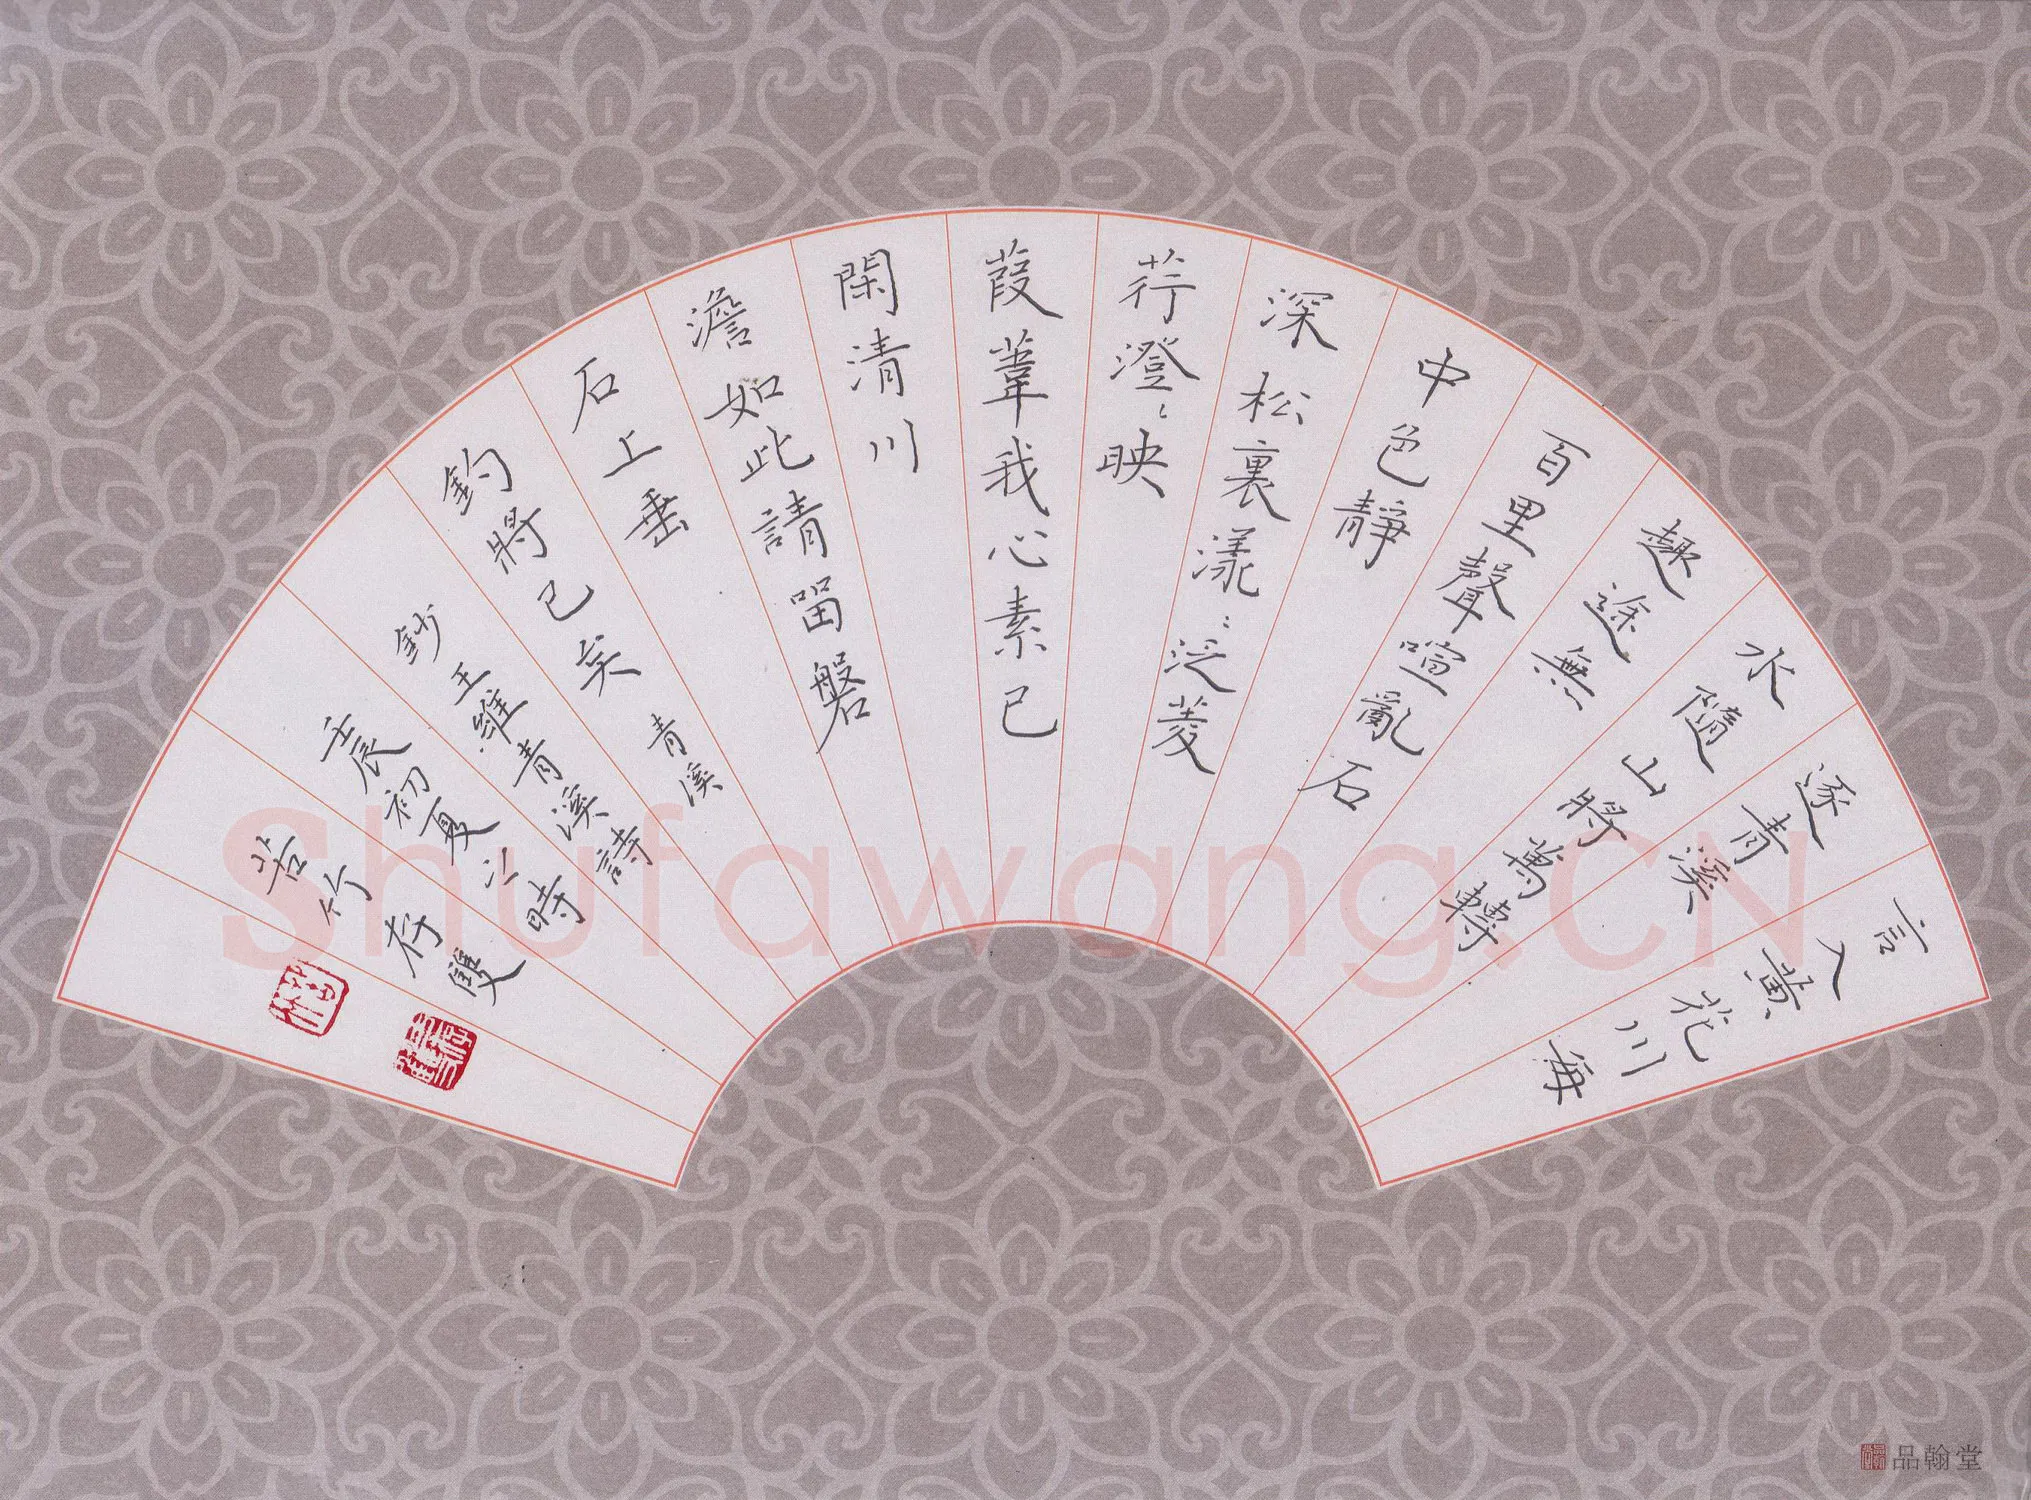 言入黄花川每
逐青溪
水隨山將萬轉
趣途無
百里聲喧亂石
中色靜
深松裏漾〻泛菱
荇澄〻映
葭葦我心素已
閑清川
澹如此請留磐
石上垂
釣將已矣 青溪
鈔王維青溪詩
壬辰初夏之時
苦竹存雙
Shufawang.CN
品翰堂